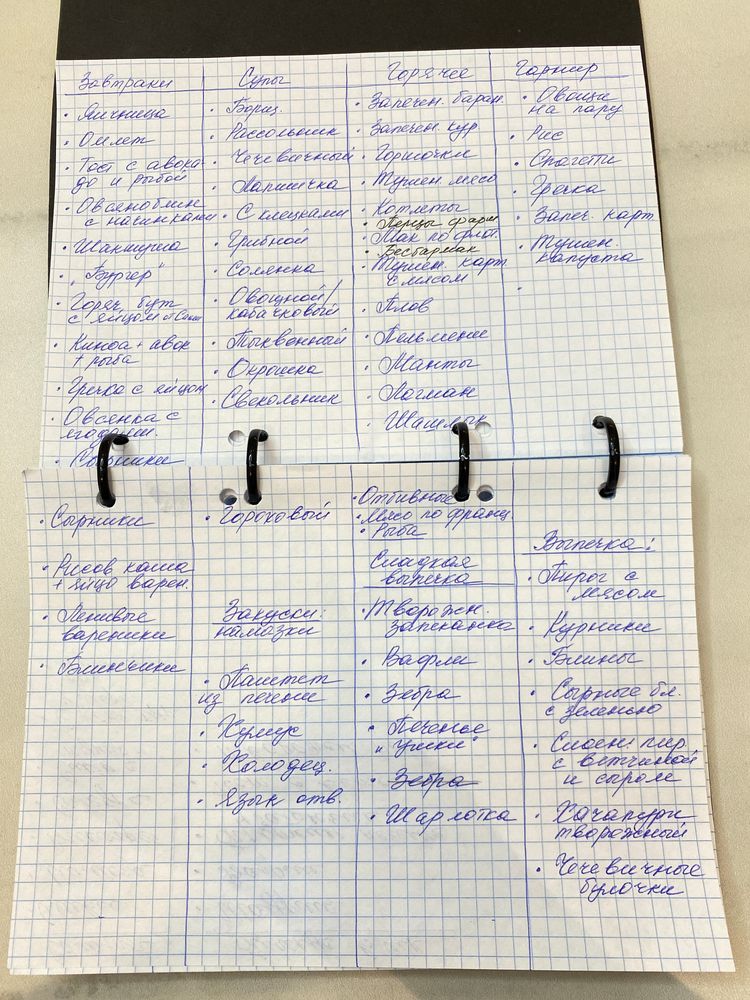 Завтраки
• Яичница
• Омлет
• Тост с авока-
до и рыбой
• Овсяноблин
с начинками
• Шакшука
• „Бургер"
• Горяч. бут
с яйцом
• Киноа + авок
+ рыба
• Гречка с яйцом
• Овсянка с
ягодами.
• Сырники
Супы
• Борщ
• Рассольник
• Чечевичный
• Лапшичка
• С клецками
• Грибной
• Солянка
• Овощной/
кабачковый
• Тыквенный
• Окрошка
• Свекольник
Горячее
• Запечен. баран.
• Запечен. кур
• Горшочки
• Тушен. мясо
• Котлеты
• Перцы фарш
• Мак по флот.
• Бесбармак
• Тушен. карт
с мясом
• Плов
• Пельмени
• Манты
• Лагман
• Шашлык
Гарнир
• Овощи
на пару
• Рис
• Спагетти
• Гречка
• Запеч. карт
• Тушен.
капуста
•
• Сырники
• Рисов каша
+ яйцо варен.
• Ленивые
вареники
• Блинчики
• Гороховый
Закуски:
намазки
• Паштет
из печени
• Хумус
• Холодец
• Язык отв.
• Отбивные
• Мясо по франц.
• Рыба
Сладкая
выпечка
• Творожн.
запеканка
• Вафли
• Зебра
• Печенье
„Ушки"
• Зебра
• Шарлотка
Выпечка:
• Пирог с
мясом
• Курники
• Блины
• Сырные бл.
с зеленью
• Слоен. пир
с ветчиной
и сыром
• Хачапури
творожный
• Чечевичные
булочки